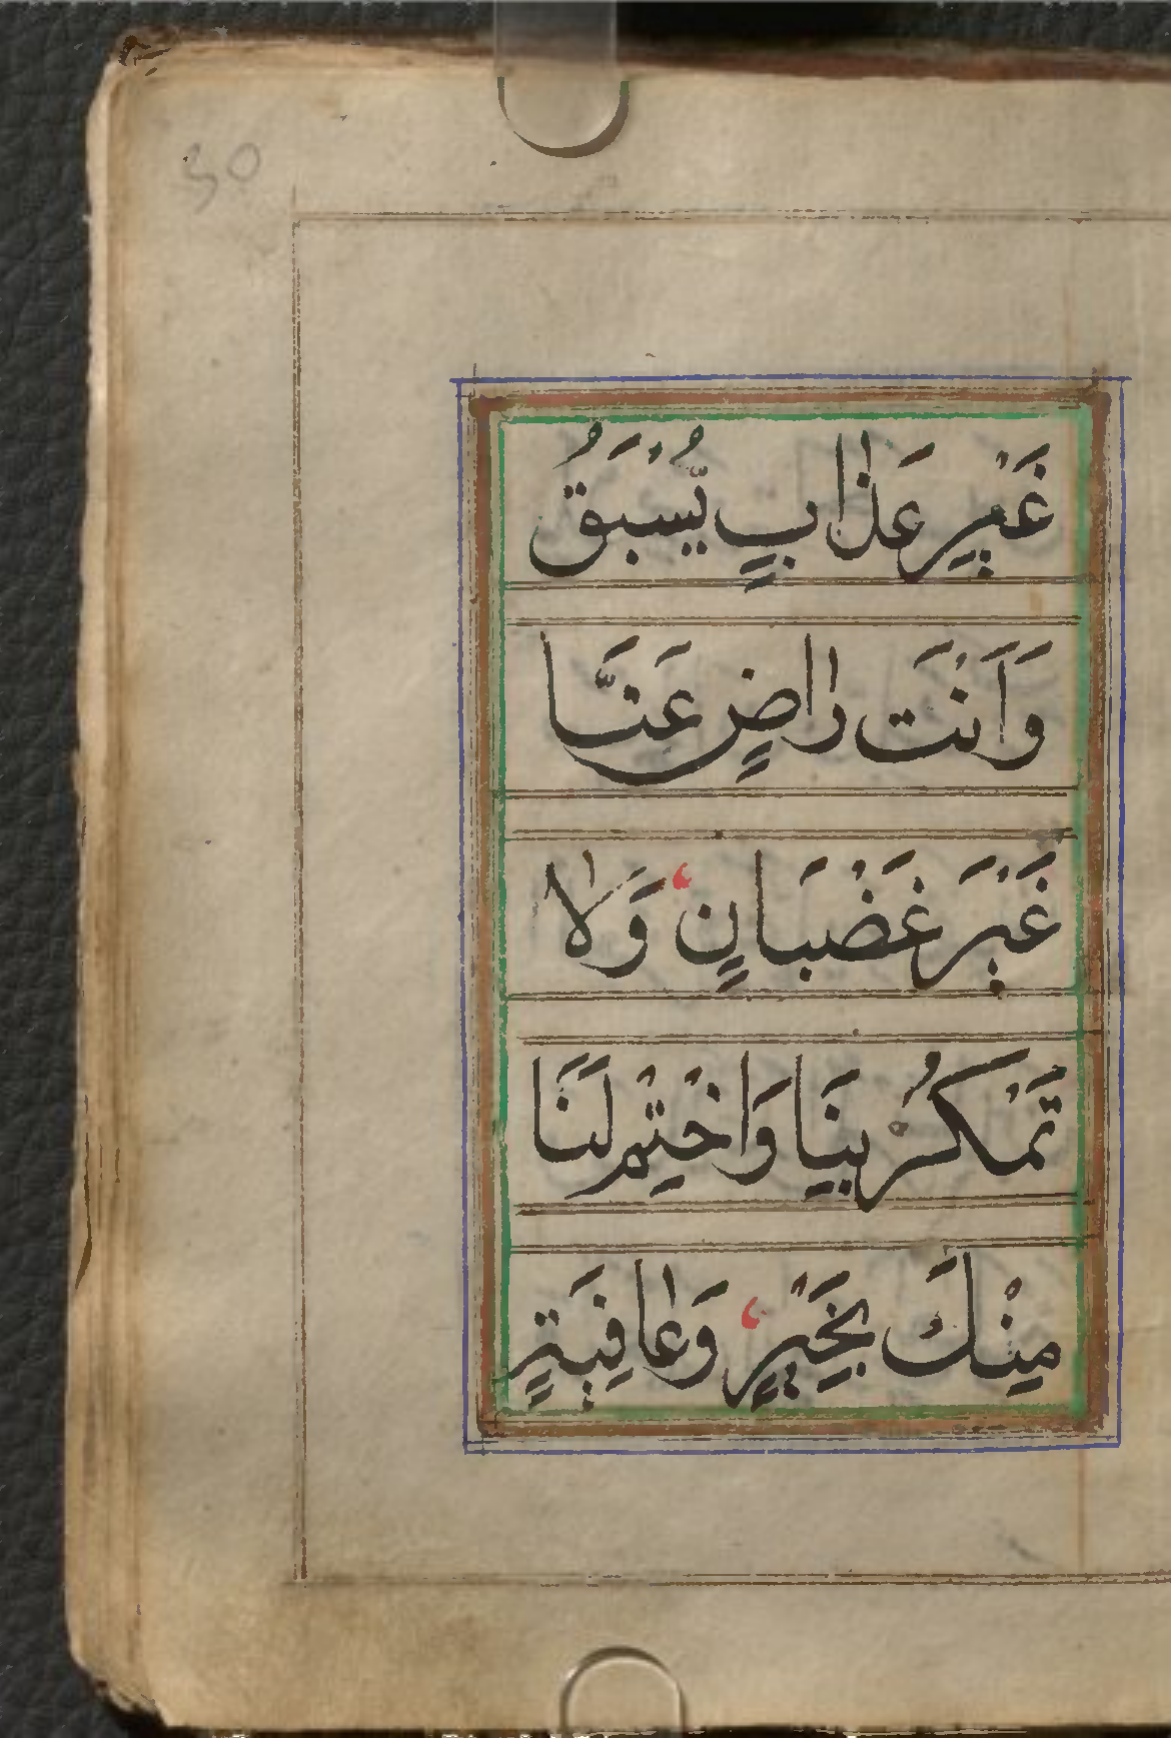 50
غَيْرِ عَذَابٍ يُّسْبَقُ
وَاَنْتَ رَاضٍ عَنَّا
غَيْرَ غَضْبَانٍ وَلَا
تَمْكُرْ بِنَا وَاخْتِمْ لَنَا
مِنْكَ بِخَيْرٍ وَعَافِيَةٍ